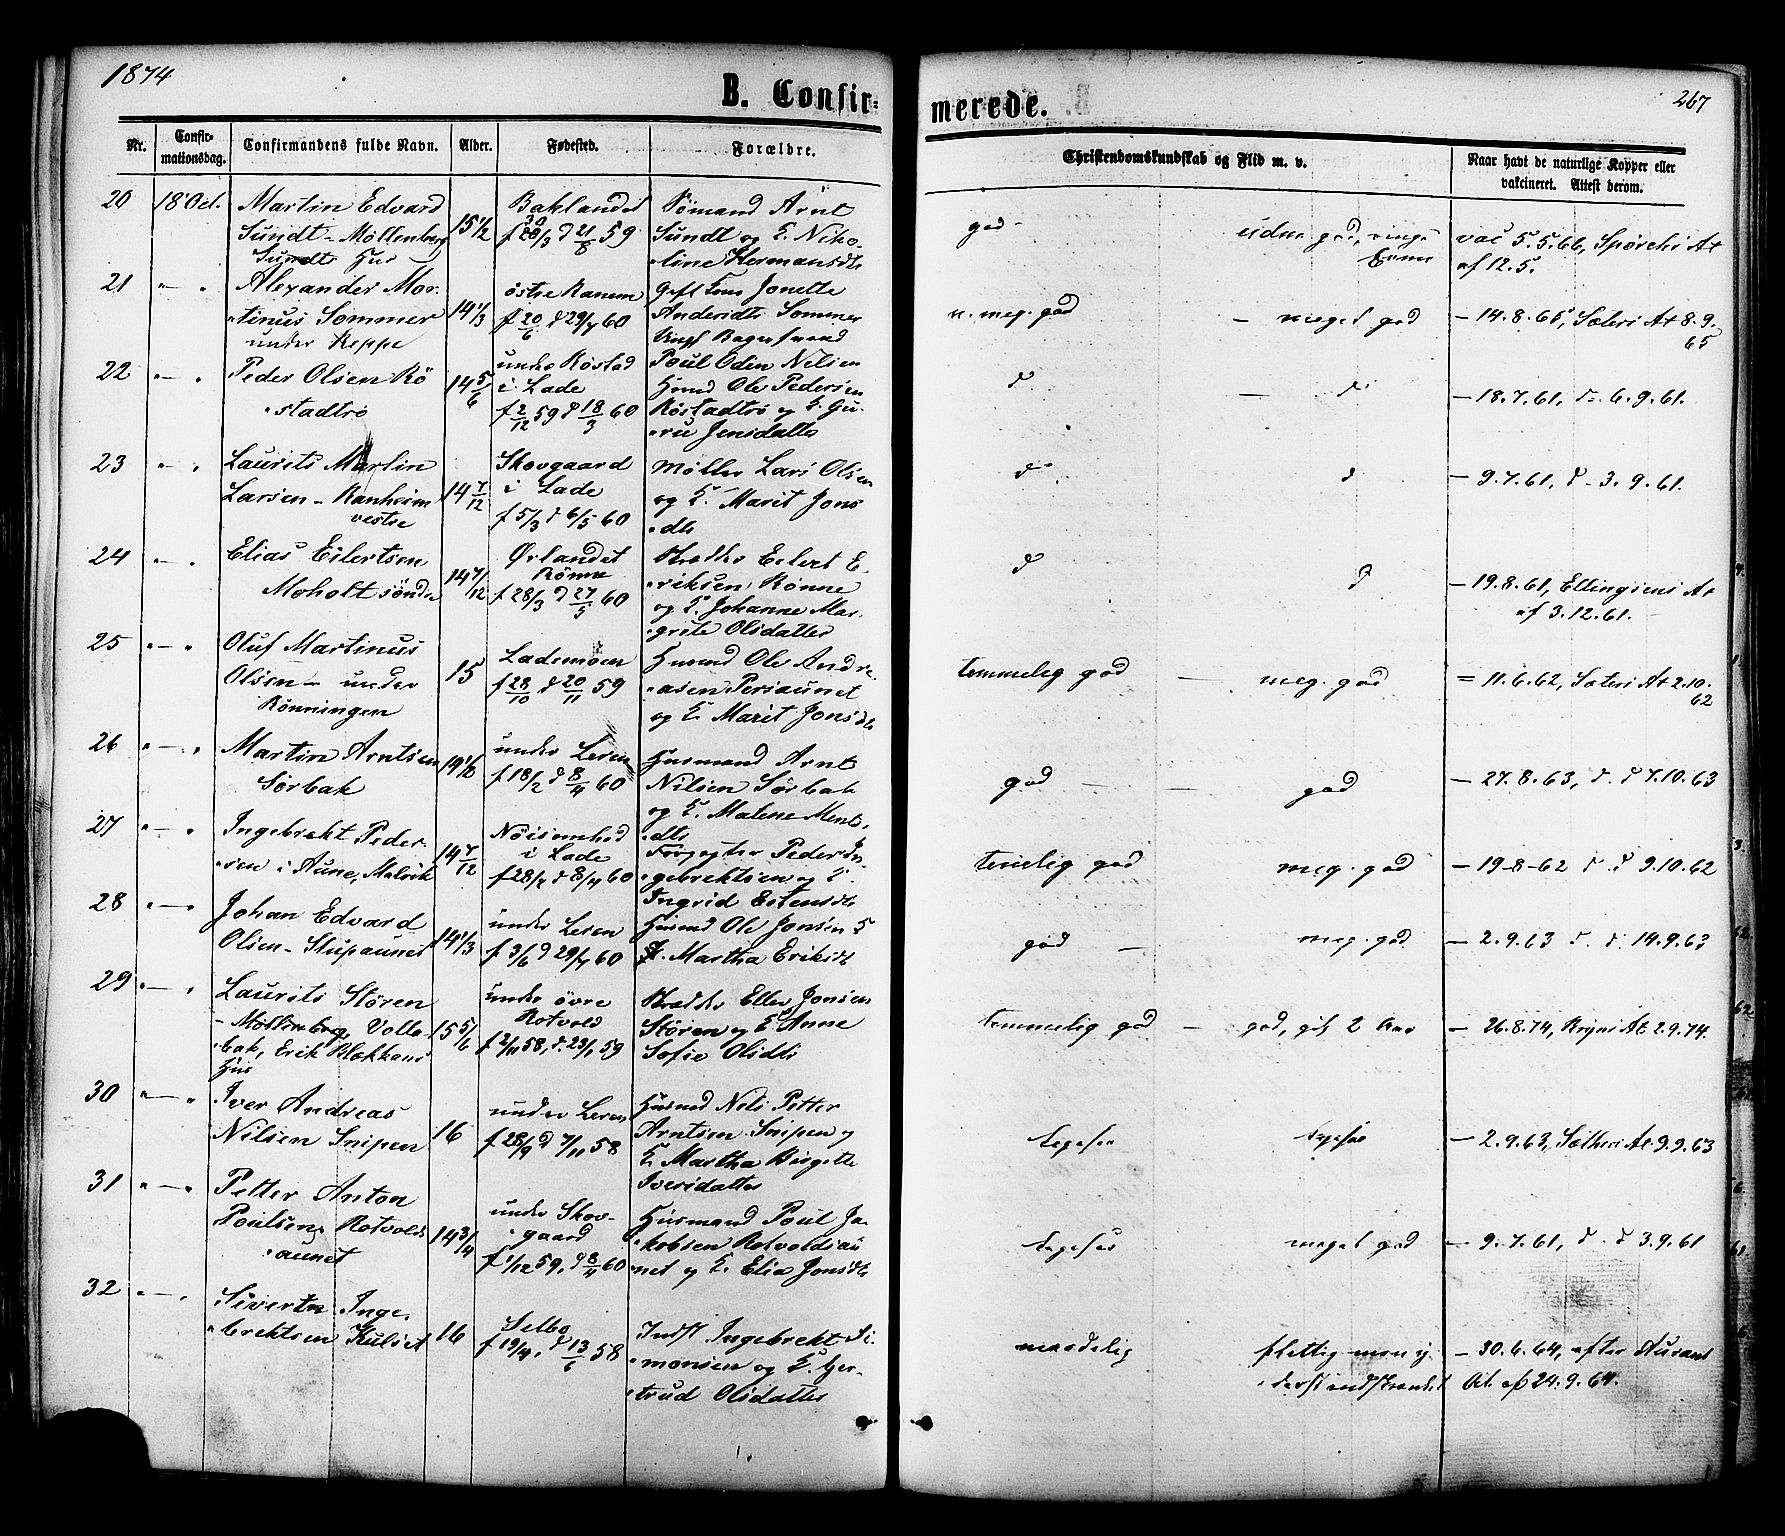 1874
B. Confir-
merede.
267
Nr.
Confir-
mationsdag.
Confirmandens fulde Navn.
Alder.
Fødested.
Forældre.
Christendomskundskab og Flid m. v.
Naar havt de naturlige Kopper eller
vakcineret. Attest derom.
20 18 Oct. Martin Edvard
Sundt - Möllenberg
Sundts Hus
15 1/2
Baklandet
f 30/3 d 21/8 59
Sömand Arnt
Sundt og H. Niko-
line Hermansdtr
god
udm. god, ringe
Evne
vac 5.5.66, Spörcks At
af 12.5.
21 " — " Alexander Mor-
tinus Sommer
under Reppe
14 1/3
östre Ranem
f 20/6 d 29/7 60
Gift Jonette
Andersdtr Sommer
n. meg. god
— meget god
— 14.8.65, Sæters At 8.9.
65
22 " — " Peder Olsen Rö
stadtrö
14 5/6
under Röstad
i Lade
f 2/12 59 d 18/3 60
Poul Oden Nilsen
Husmd Ole Pedersen
Röstadtrö og H. Gu-
ru Jensdatter
d
— d
— 18.7.61, d - 6.9.61.
23 " — " Laurits Martin
Larsen - Ranheim
vestre
14 7/12
Skovgaard
i Lade
f 5/3 d 6/5 60
Möller Lars Olsen
og H. Marit Jons
dtr
d
d
— 9.7.61, d - 3.9.61.
24 " — " Elias Eilertsen
Moholt söndre
14 7/12
Ørlandet
Rönne
f 28/3 d 27/5 60
Eilert E-
riksen Rönne
og H. Johanne Mar-
grete Olsdatter
d
d
— 19.8.61, Ellingsens At
af 3.12.61.
25 " — " Oluf Martinus
Olsen - under
Rönningen
15
Lademoen
f 28/10 d 20/11 59
Husmd Ole Andre-
asen Persaunet
og H. Marit Jonsdtr
temmelig god
— meg. god
= 11.6.62, Sæters At 2.10.
62
26 " — " Martin Arntsen
Sörbak
under Leren
f 18/2 d 8/4 60
Husmand Arnt
Nilsen Sörbak
og H. Malene Ments-
dtr
god
— god
— 27.8.63, d. d 7.10.63
27 " — " Ingebrekt Peder-
sen i Aune, Malvik
14 7/12
Nöisomhed
i Lade
f 28/2 d 8/4 60
Forpagter Peder In-
gebrektsen og H.
Ingrid Estensdtr
temelig god
meg. god
— 19-8-62 d. d 9.10.62
28 " — " Johan Edvard
Olsen - Stupaunet
14 1/3
under Leren
f 3/6 d 29/7 60
Husmd Ole Jonsen
H. Martha Eriksdtr
god —
meg. god
— 2.9.63 d. d. 14.9.63
29 " — " Laurits Stören
- Möllenberg Volle
bak, Erik Blekkans
Hus
15 5/6
under övre
Rotvold
f 2/11 58, d. 23/1 59
Eller Jonsen
Stören og H. Anne
Sofie Olsdtr
temmelig god
— god, gik 2 Aar
— 26.8.74, At 2.9.74.
30 " — " Iver Andreas
Nilsen Snipen
16
under Leren
f 28/9 d 7/11 58
Husmd Nels Petter
Arntsen Snipen og
H. Martha Birgitte
Iversdatter
ligesaa
ligesaa
— 2.9.63, Sæthers At 9.9.63
31 " — " Petter Anton
Poulsen Rotvolds
aunet
14 3/4
under Skov-
gaard
f 1/12 59, d 8/4 60
Husmand Poul Ja-
kobsen Rotvoldsau
net og H. Elia Jonsdtr
ligesaa
meget god
— 9.7.61, d. d 3.9.61
32 " — " Sivert Inge
brektsen Kulset
16
Selbo
f 19/4, d 13/6 58
Indst Ingebrekt Si-
monsen og H. Ger-
trud Olsdatter
maadelig
flittig men y-
derst indskrænket
— 30.6.64, efter Aurans
At. af 24.9.64.